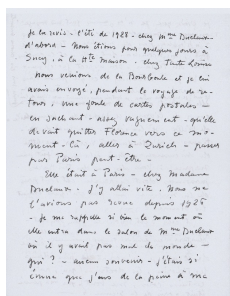 Je la revis - l'été de 1928 - chez Mme Duclaux
d'abord - Nous étions pour quelques jours à
Sucy, à la Hte Maison - chez Tante Louise
Nous revenions de la Bourboule et je lui
avais envoyé, pendant le voyage de re-
tour, une foule de cartes postales -
en sachant - assez vaguement - qu'elle
devait quitter Florence vers ce mo-
ment-là, aller à Zurich - passer
par Paris peut-être -
Elle était à Paris - chez Madame
Duclaux - J'y allai vite. Nous ne
l'avions pas revue depuis 1926
- Je me rappelle si bien le moment où
elle entra dans le salon de Mme Duclaux
où il y avait pas mal de monde -
qui ? - aucun souvenir - j'étais si
émue que j'eus de la peine à me